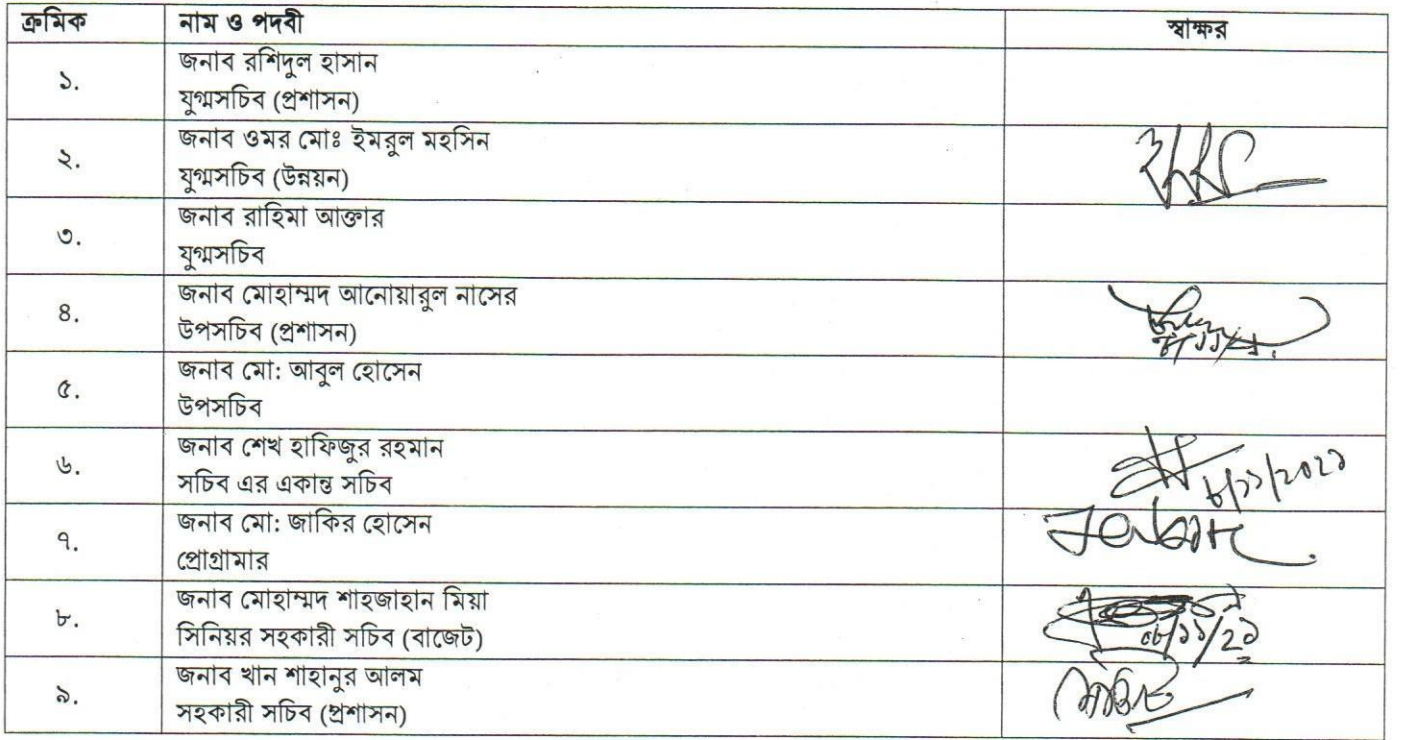 ক্রমিক নাম ও পদবী স্বাক্ষর
১. জনাব রশিদুল হাসান
যুগ্মসচিব (প্রশাসন)
২. জনাব ওমর মোঃ ইমরুল মহসিন
যুগ্মসচিব (উন্নয়ন)
৩. জনাব রাহিমা আক্তার
যুগ্মসচিব
৪. জনাব মোহাম্মদ আনোয়ারুল নাসের
উপসচিব (প্রশাসন)
৫. জনাব মো: আবুল হোসেন
উপসচিব
৬. জনাব শেখ হাফিজুর রহমান
সচিব এর একান্ত সচিব
৮/১১/২০২১
৭. জনাব মো: জাকির হোসেন
প্রোগ্রামার
৮. জনাব মোহাম্মদ শাহজাহান মিয়া
সিনিয়র সহকারী সচিব (বাজেট)
০৮/১১/২১
৯. জনাব খান শাহানুর আলম
সহকারী সচিব (প্রশাসন)